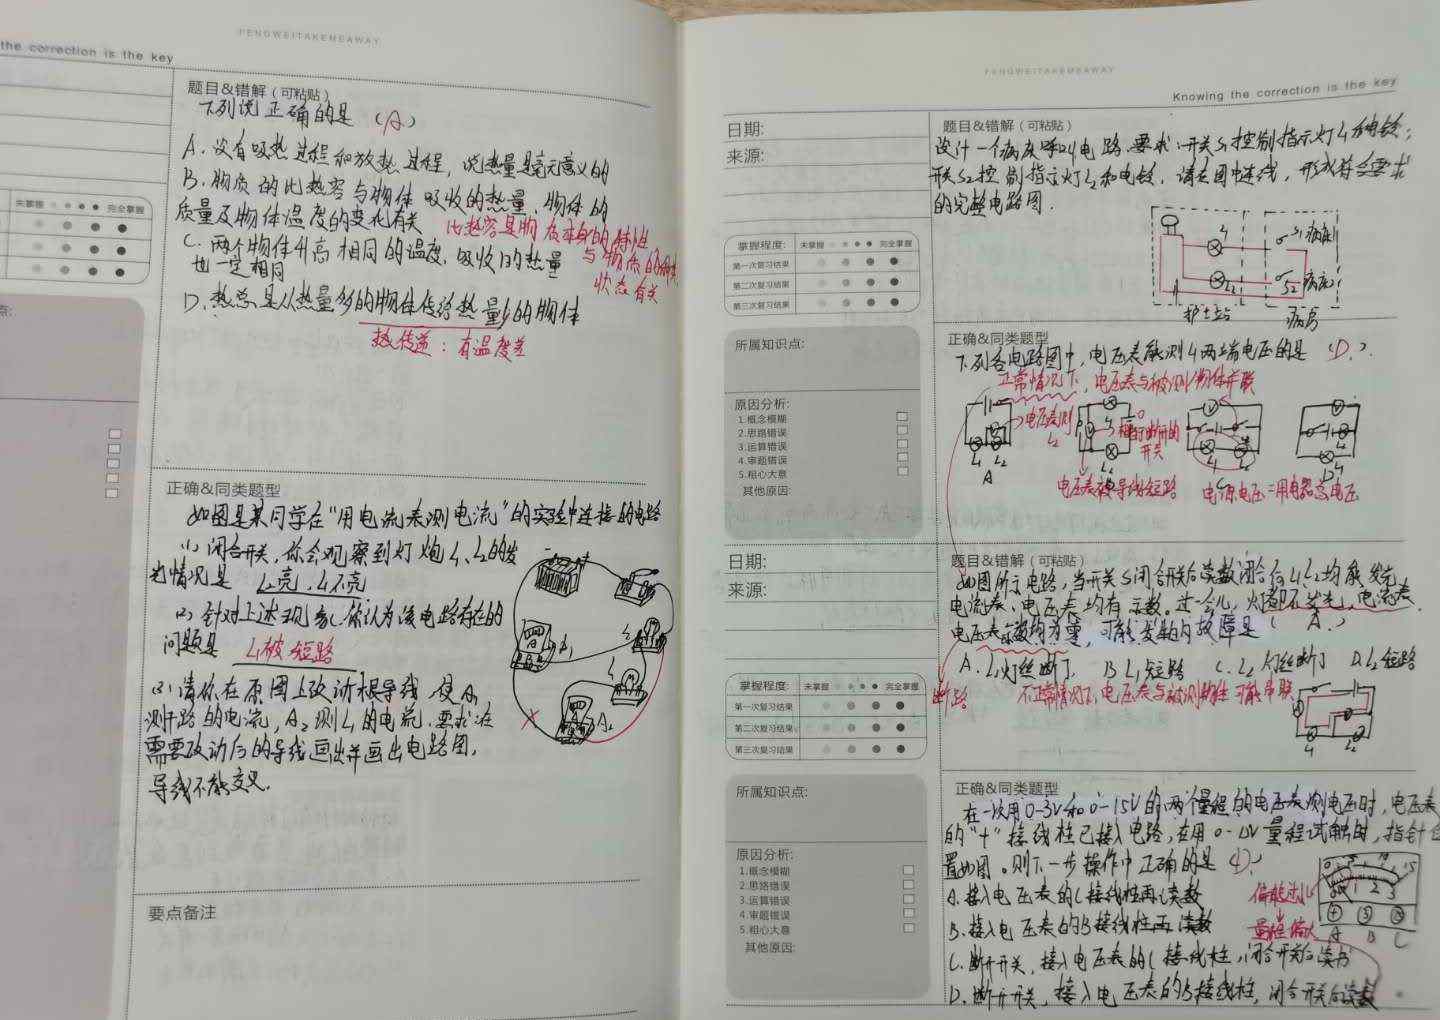 the correction is the key
FENGWEITAKEMEAWAY
题目&错解（可粘贴）
下列说正确的是（A）
A.没有吸热过程和放热过程，说热量是毫无意义的
B.物质的比热容与物体吸收的热量、物体的
质量及物体温度的变化有关
比热容是物质本身的特性
与物质的种类
状态有关
C.两个物体升高相同的温度，吸收的热量
也一定相同
D.热总是从热量多的物体传给热量少的物体
热传递：有温度差
未掌握 完全掌握
点:
正确&同类题型
如图是某同学在“用电流表测电流”的实验中连接的电路
(1)闭合开关，你会观察到灯炮L1、L2的发
光情况是 L2亮，L1不亮
(2)针对上述现象，你认为该电路存在的
问题是 L1被短路
(3)请你在原图上改动一根导线，使A1
测干路的电流，A2测L1的电流，要求在
需要改动后的导线画出并画出电路图，
导线不能交叉.
A1
A2
要点备注
FENGWEITAKEMEAWAY
Knowing the correction is the key
日期:
来源:
掌握程度: 未掌握 完全掌握
第一次复习结果
第二次复习结果
第三次复习结果
所属知识点:
原因分析:
1.概念模糊
2.思路错误
3.运算错误
4.审题错误
5.粗心大意
其他原因:
题目&错解（可粘贴）
设计一个病床呼叫电路.要求:开关S1控制指示灯L1和电铃；
开关S2控制指示灯L2和电铃，请在图中连线，形成符合要求
的完整电路图.
L1 S1 病床1
L2 S2 病床2
护士站 病房
正确&同类题型
下列各电路图中，电压表能测L1两端电压的是（D.）.
正常情况下，电压表与被测物体并联
电压表测
L2
相当断开的
开关
L1 L2
A
电压表被导线短路
电源电压=用电器总电压
日期:
来源:
掌握程度: 未掌握 完全掌握
第一次复习结果
第二次复习结果
第三次复习结果
所属知识点:
原因分析:
1.概念模糊
2.思路错误
3.运算错误
4.审题错误
5.粗心大意
其他原因:
题目&错解（可粘贴）
如图所示电路，当开关S闭合后L1L2均能发光
电流表、电压表均有示数。过一会儿，灯都不发光，电流表、
电压表示数均为零，可能发生的故障是（A.）
A.L1灯丝断了 B L1短路 C.L2灯丝断了 D.L2短路
断路
不正常情况下，电压表与被测物体可能串联
L1 L2
正确&同类题型
在一次用0-3V和0-15V的两个量程的电压表测电压时，电压表
的“+”接线柱已接入电路，在用0-15V量程试触时，指针位
置如图。则下一步操作中正确的是 D.
A.接入电压表的C接线柱再读数
B.接入电压表的B接线柱再读数
C.断开开关，接入电压表的C接线柱，闭合开关后读书
D.断开开关，接入电压表的B接线柱，闭合开关后读数
偏转过小
量程偏大
0 5 10 15
0 1 2 3
+ 3 15
A B C